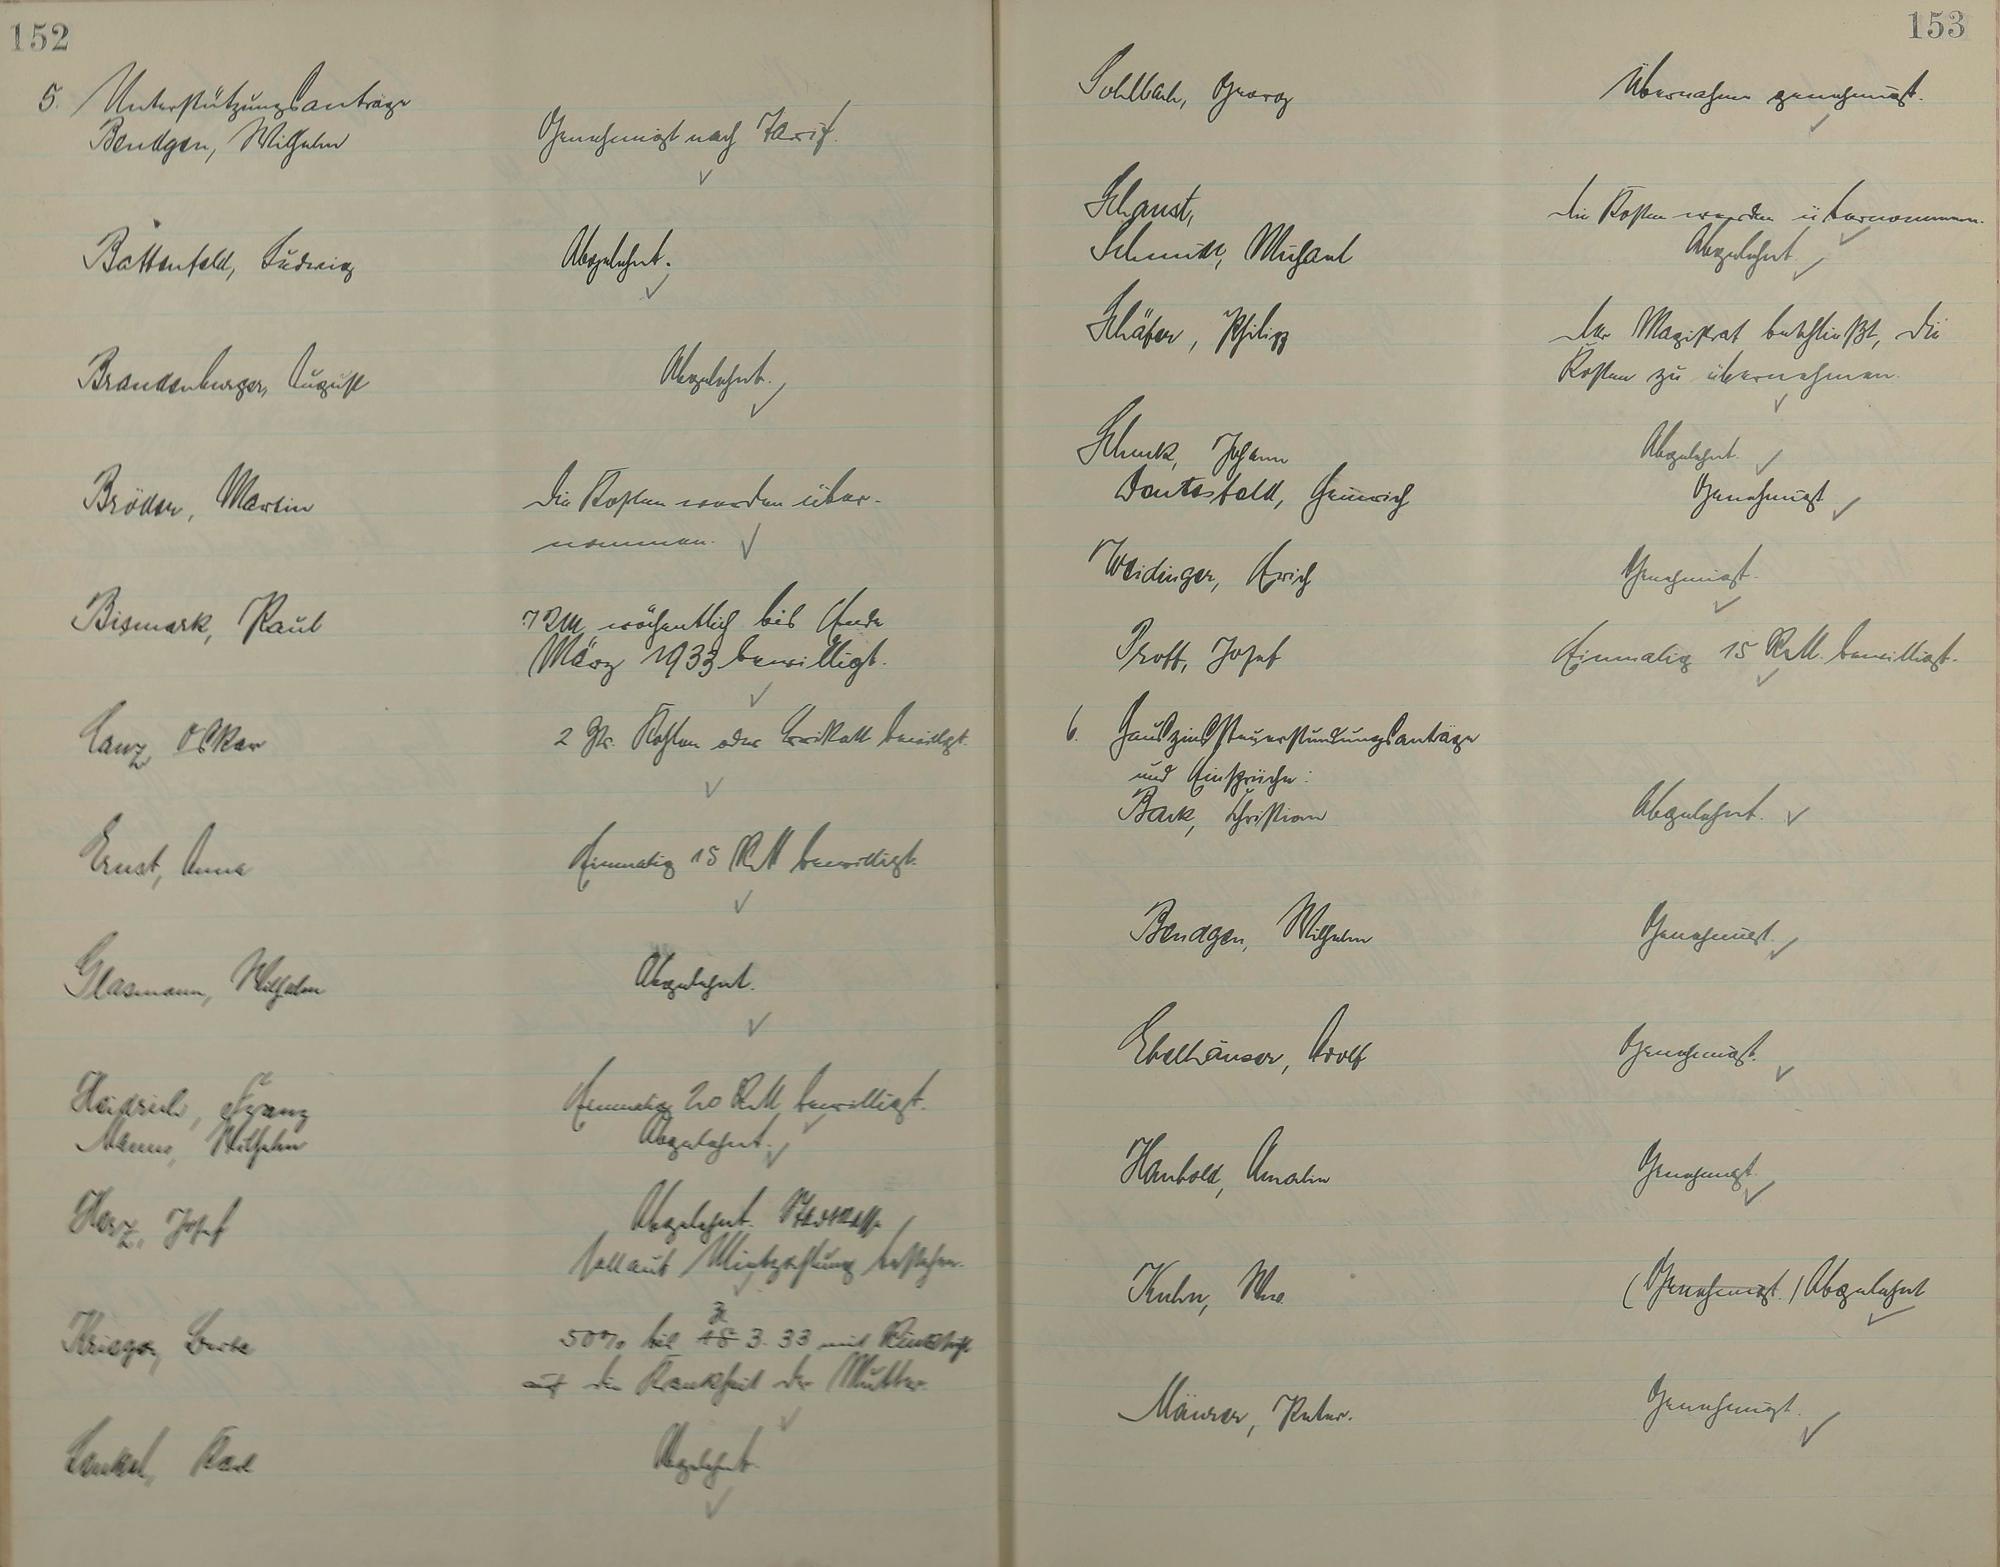 152
5. Unterstützungsanträge
Bendgen, Wilhelm Genehmigt nach Tarif.
Battenfeld, Ludwig Abgelehnt.
Brandenburger, August Abgelehnt.
Bröder, Martin Die Kosten werden über-
nommen.
Bismark, Paul 7 RM wöchentlich bis Ende
März 1933 bewilligt.
Lanz, Oskar 2 Ztr. Kohlen oder Briketts bewilligt.
Ernst, Anna Einmalig 15 RM bewilligt.
Glasmann, Wilhelm Abgelehnt.
Heidrich, Franz Einmalig 20 RM bewilligt.
Manns, Wilhelm Abgelehnt.
Herz, Josef Abgelehnt. Stadtkasse
soll auf Mietzahlung bestehen.
Krieger, 50% bis 3. 33 mit Rücksicht
auf die Krankheit der Mutter.
Henkel, Karl Abgelehnt.
153
Sohlbach, Georg Übernahme genehmigt.
Schaust, Die Kosten werden übernommen.
Schmidt, Michael Abgelehnt.
Schäfer, Philipp Der Magistrat beschließt, die
Kosten zu übernehmen.
Schuck, Johann Abgelehnt.
Dautsfeld, Heinrich Genehmigt
Weidinger, Erich Genehmigt.
Prott, Josef Einmalig 15 RM. bewilligt.
6. Hauszinssteuerstundungsanträge
und Einsprüche:
Back, Christian Abgelehnt.
Bendgen, Wilhelm Genehmigt.
Ebelhäuser, Adolf Genehmigt.
Haubold, Amalie Genehmigt.
Kuhn, Wwe. (Genehmigt.) Abgelehnt
Mäurer, Peter. Genehmigt.